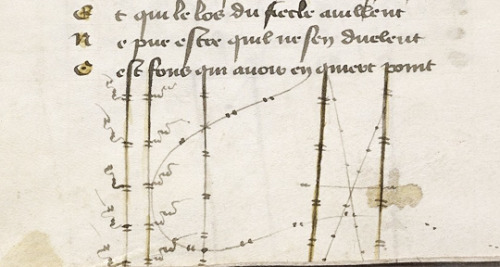 Et qui le los du siecle auillent
Ne puet estre quil ne sen duelent
Cest fous qui auoir en quiert point